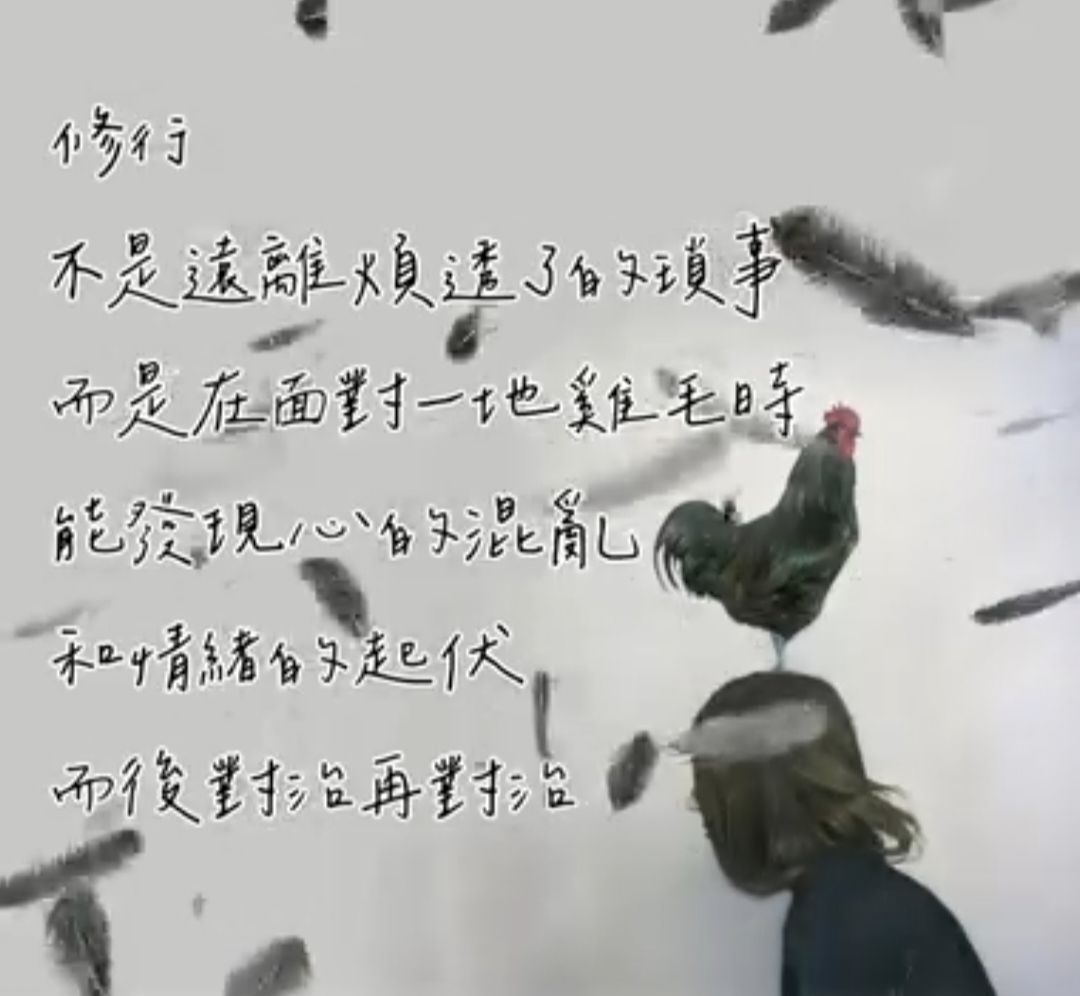 修行
不是遠離煩透了的瑣事
而是在面對一地雞毛時
能發現心的混亂
和情緒的起伏
而後對治再對治